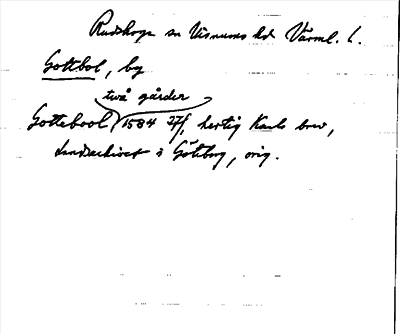 Rudskoga sn Visnums hd Värml. l.
Gottbol, by
två gårder
Gottebool 1584 27/1, hertig Karls brev,
Landsarkivet i Göteborg, orig.